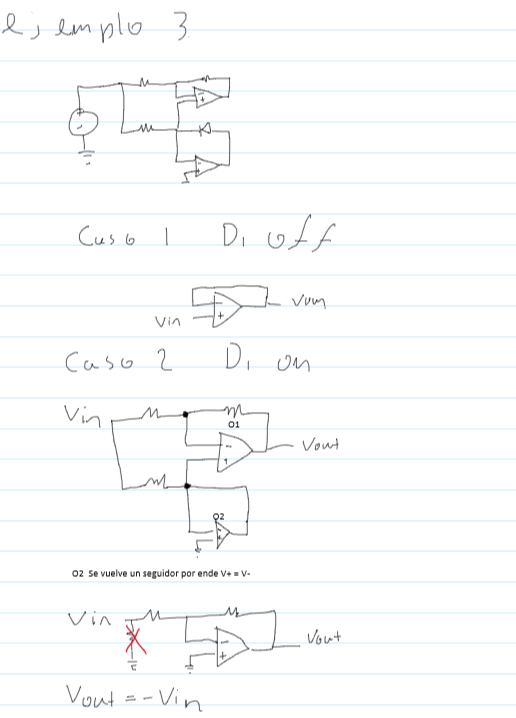 ejemplo 3
Caso 1 D1 off
Vin
Caso 2 D1 on
Vin
O1
Vout
O2
O2 Se vuelve un seguidor por ende V+ = V-
Vin
Vout
Vout = - Vin